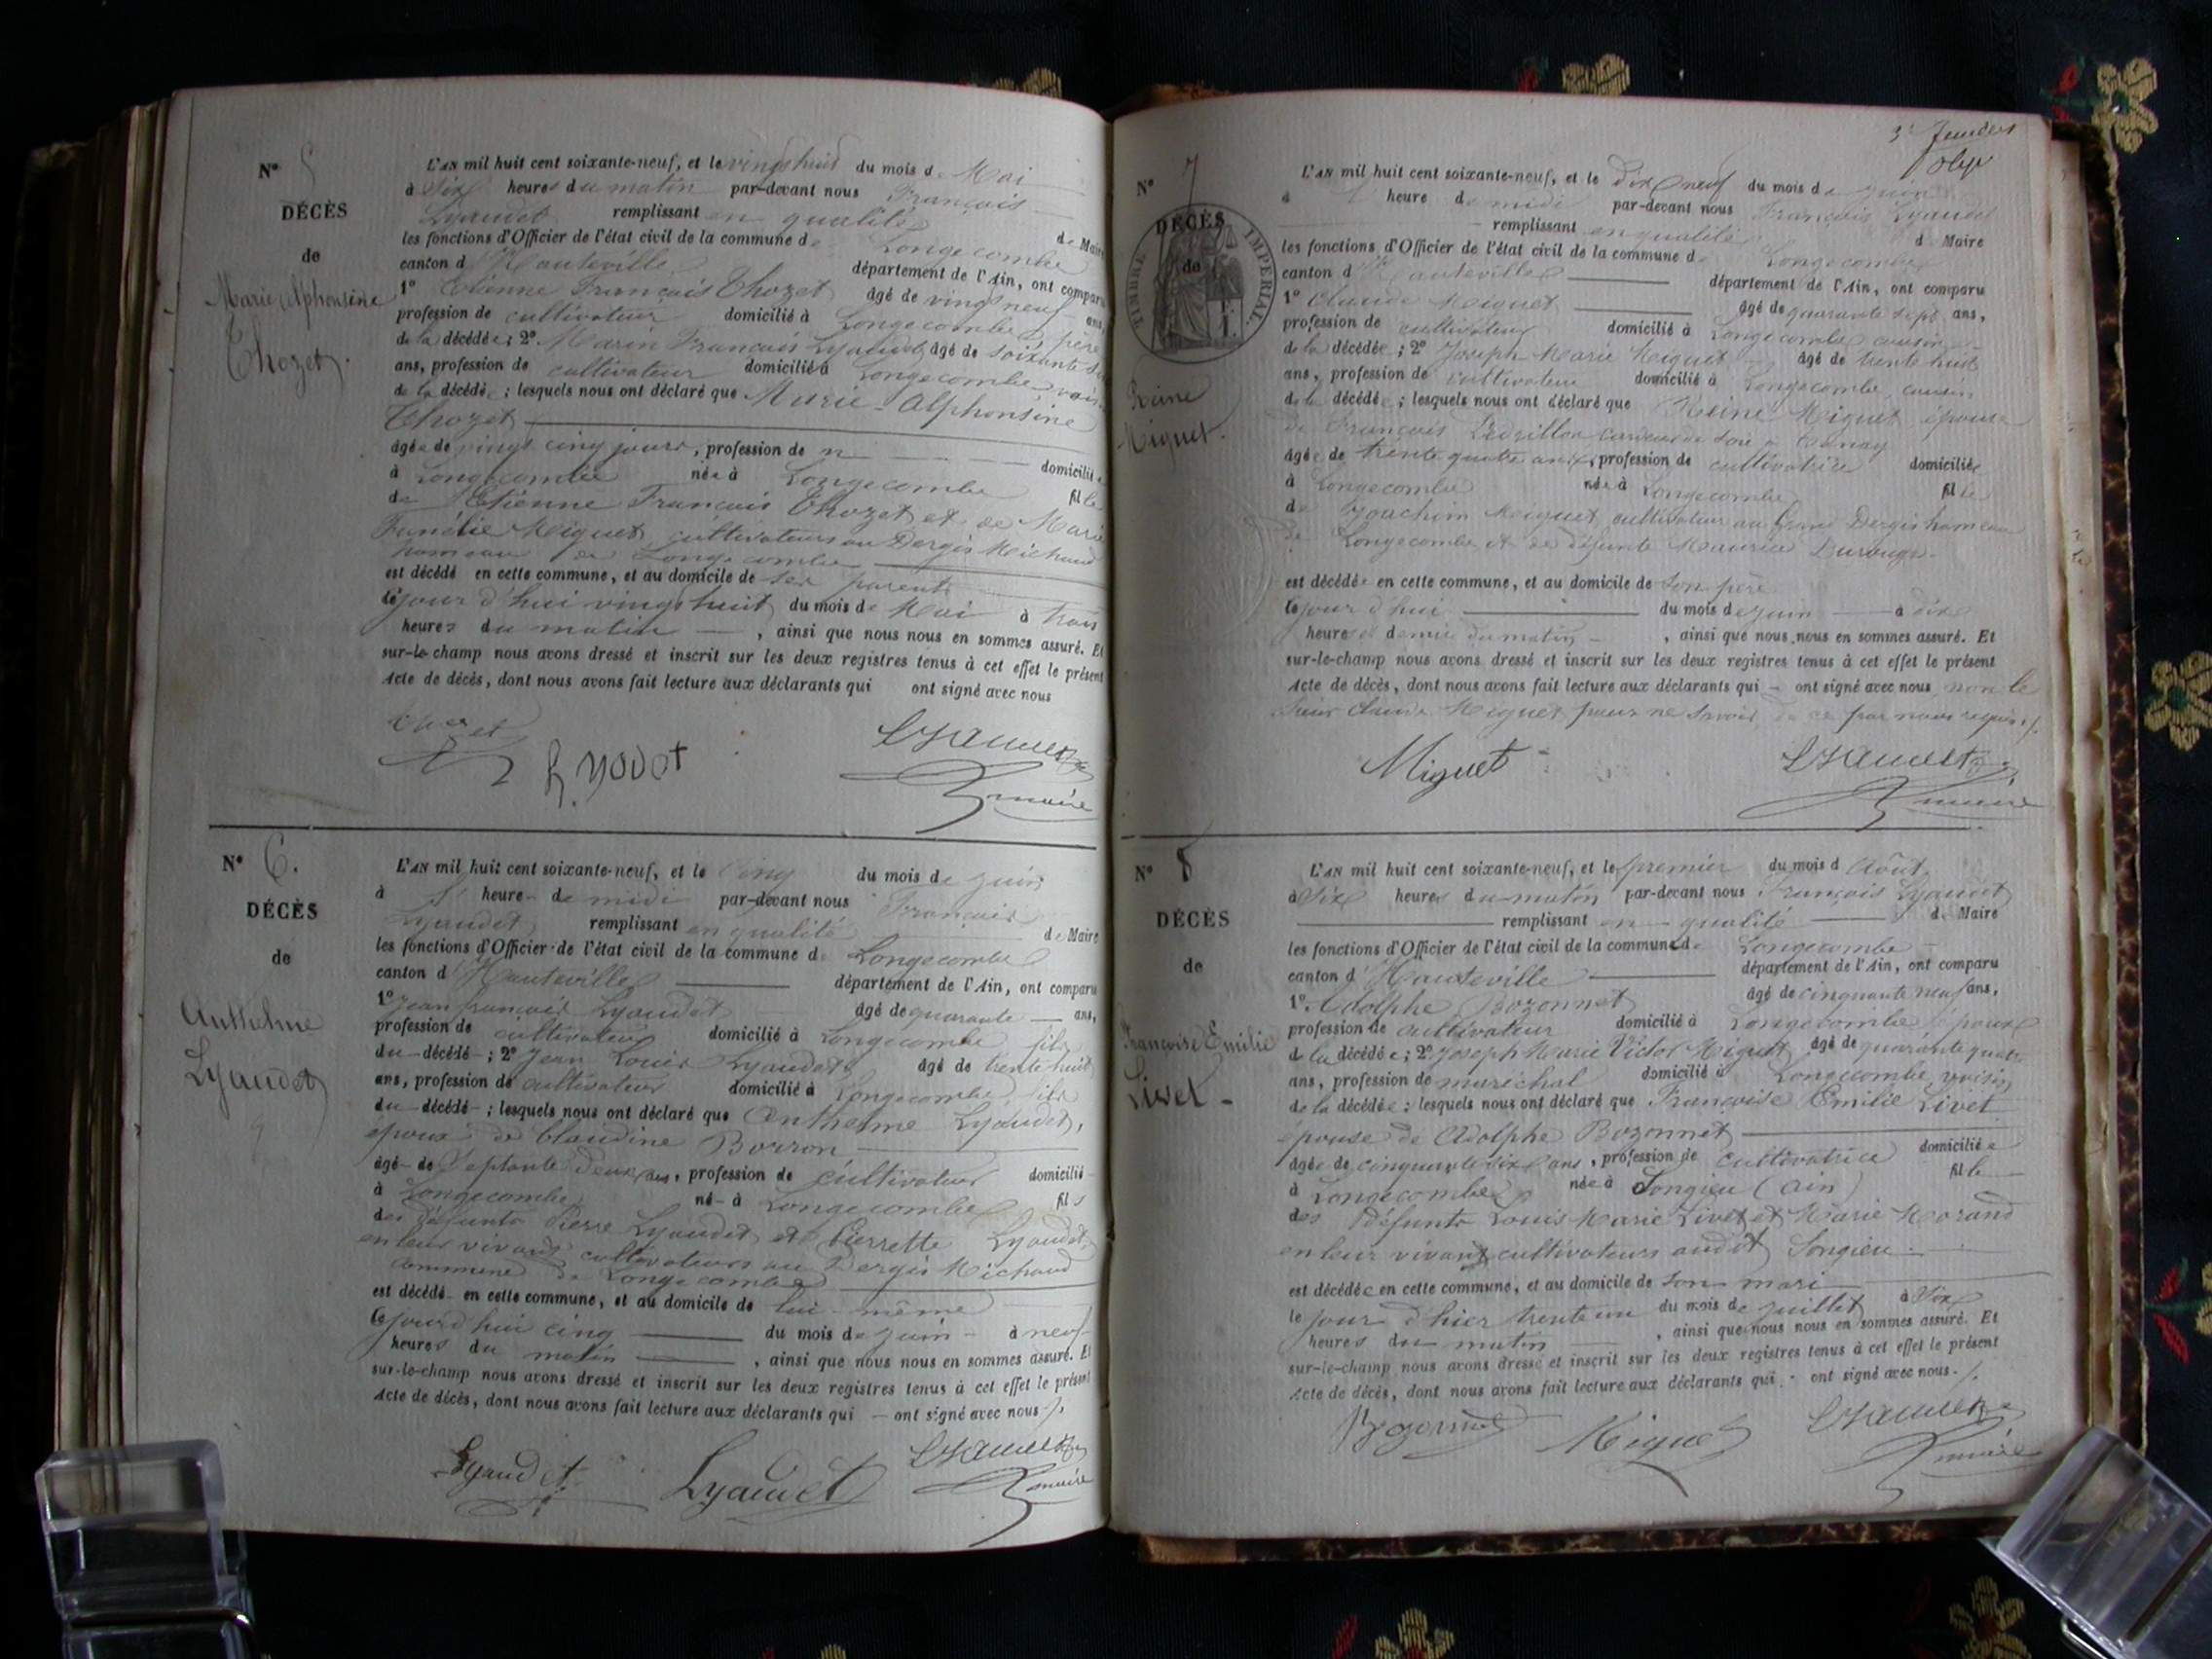 N° 5
DÉCÈS
de
Marie Alphonsine
Thozet.
L'AN mil huit cent soixante-neuf, et le vingt huit du mois de Mai
à Six heures du matin par-devant nous François
Lyaudet remplissant en qualité de Maire
les fonctions d'Officier de l'état civil de la commune de Longecombe
canton d'Hauteville département de l'Ain, ont comparu
1° Etienne François Thozet âgé de vingt neuf ans,
profession de cultivateur domicilié à Longecombe, père
de la décédée; 2° Marin François Lyaudet âgé de soixante
ans, profession de cultivateur domicilié à Longecombe,
de la décédée; lesquels nous ont déclaré que Marie-Alphonsine
Thozet
âgée de vingt cinq jours, profession de domiciliée
à Longecombe née à Longecombe fille
de Etienne François Thozet et de Marie
Miguet cultivateurs au Dergis Michaud
hameau de Longecombe
est décédé en cette commune, et au domicile de ses parents
le jour d'hui vingt huit du mois de Mai à trois
heures du matin, ainsi que nous nous en sommes assuré. Et
sur-le-champ nous avons dressé et inscrit sur les deux registres tenus à cet effet le présent
Acte de décès, dont nous avons fait lecture aux déclarants qui ont signé avec nous
Thozet Lyaudet
maire
N° 6.
DÉCÈS
de
Anthelme
Lyaudet
L'AN mil huit cent soixante-neuf, et le cinq du mois de juin
à heure de midi par-devant nous François
Lyaudet remplissant en qualité de Maire
les fonctions d'Officier de l'état civil de la commune de Longecombe
canton d'Hauteville département de l'Ain, ont comparu
1° Jean françois Lyaudet âgé de quarante ans,
profession de cultivateur domicilié à Longecombe fils
du décédé; 2° Jean Louis Lyaudet âgé de trente huit
ans, profession de cultivateur domicilié à Longecombe, fils
du décédé; lesquels nous ont déclaré que Anthelme Lyaudet,
époux de Claudine Borron
âgé de Septante deux ans, profession de cultivateur domicilié
à Longecombe né à Longecombe fils
des défunts Pierre Lyaudet et Pierrette Lyaudet
en leur vivant cultivateurs au Dergis Michaud
commune de Longecombe
est décédé en cette commune, et au domicile de lui-même
le jourd'hui cinq du mois de juin à neuf
heures du matin, ainsi que nous nous en sommes assuré. Et
sur-le-champ nous avons dressé et inscrit sur les deux registres tenus à cet effet le présent
Acte de décès, dont nous avons fait lecture aux déclarants qui ont signé avec nous
Lyaudet Lyaudet Lyaudet
maire
N° 7
DÉCÈS
de
TIMBRE IMPÉRIAL
Reine
Miguet.
L'AN mil huit cent soixante-neuf, et le dix neuf du mois de juin
à heure de midi par-devant nous François Lyaudet
remplissant en qualité de Maire
les fonctions d'Officier de l'état civil de la commune de Longecombe
canton d'Hauteville département de l'Ain, ont comparu
1° Claude Miguet âgé de quarante sept ans,
profession de cultivateur domicilié à Longecombe cousin
de la décédée; 2° Joseph Marie Miguet âgé de trente huit
ans, profession de cultivateur domicilié à Longecombe, cousin
de la décédée; lesquels nous ont déclaré que Reine Miguet épouse
de François cardeur de soie à Tenay
âgée de trente quatre ans, profession de cultivatrice domiciliée
à Longecombe née à Longecombe fille
de Joachim Miguet cultivateur au Grand Dergis hameau
de Longecombe et de défunte Maurice
est décédée en cette commune, et au domicile de son père
le jour d'hui du mois de juin à dix
heures et demie du matin, ainsi que nous nous en sommes assuré. Et
sur-le-champ nous avons dressé et inscrit sur les deux registres tenus à cet effet le présent
Acte de décès, dont nous avons fait lecture aux déclarants qui ont signé avec nous non le
sieur Claude Miguet pour ne savoir de ce par nous requis.
Miguet Lyaudet
maire
N° 8
DÉCÈS
de
Françoise Emilie
Livet
L'AN mil huit cent soixante-neuf, et le premier du mois d'Août
à Six heures du matin par-devant nous François Lyaudet
remplissant en qualité de Maire
les fonctions d'Officier de l'état civil de la commune de Longecombe
canton d'Hauteville département de l'Ain, ont comparu
1° Adolphe Bozonnet âgé de cinquante neuf ans,
profession de cultivateur domicilié à Longecombe époux
de la décédée; 2° Joseph Marie Victor Miguet âgé de quarante quatre
ans, profession de maréchal domicilié à Longecombe, voisin
de la décédée; lesquels nous ont déclaré que Françoise Emilie Livet
épouse de Adolphe Bozonnet
âgée de cinquante six ans, profession de cultivatrice domiciliée
à Longecombe née à Songieu (Ain) fille
des défunts Louis Marie Livet et Marie Morand
en leur vivant cultivateurs audit Songieu
est décédée en cette commune, et au domicile de son mari
le jour d'hier trente un du mois de juillet à Six
heures du matin, ainsi que nous nous en sommes assuré. Et
sur-le-champ nous avons dressé et inscrit sur les deux registres tenus à cet effet le présent
Acte de décès, dont nous avons fait lecture aux déclarants qui ont signé avec nous.
Bozonnet Miguet Lyaudet
maire